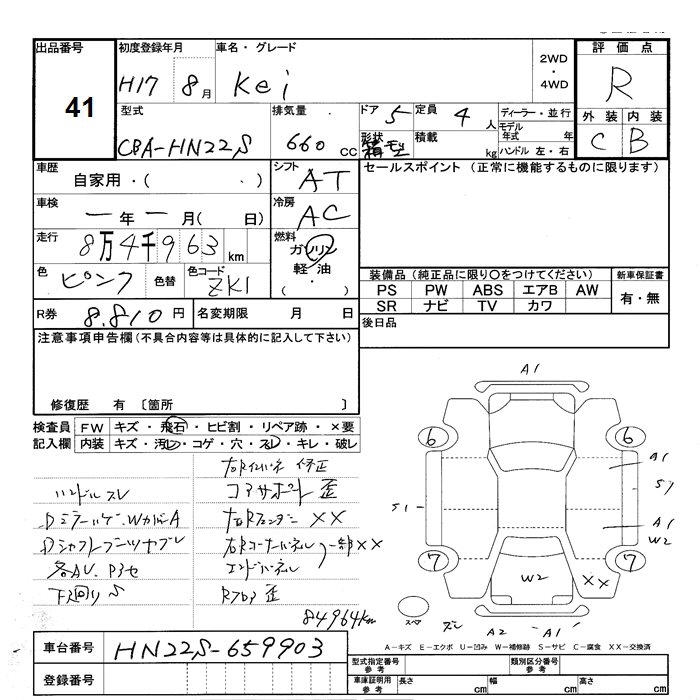 出品番号 初度登録年月 車名・グレード 2WD・4WD 評価点
41 H17 8月 Kei R
型式 排気量 ドア 5 定員 4人 ディーラー・並行 外装 内装
CBA-HN22S 660cc 形状 箱型 積載 kg モデル年式 年 ハンドル 左・右 C B
車歴 自家用・( ・ ) シフト AT セールスポイント (正常に機能するものに限ります)
車検 ー年ー月( 日) 冷房 AC
走行 8万4千963km 燃料 ガソリン 軽油 ( ・ )
色 ピンク 色替 色コード ZK1
装備品(純正品に限り○をつけてください) 新車保証書
PS PW ABS エアB AW 有・無
SR ナビ TV カワ
R券 8.810円 名変期限 月 日 後日品
注意事項申告欄(不具合内容等は具体的に記入して下さい)
修復歴 有 〔箇所 〕
検査員記入欄 FW キズ・飛石・ヒビ割・リペア跡・×要
内装 キズ・汚レ・コゲ・穴・スレ・キレ・破レ
ハンドルスレ
コアサポート歪
右Rフェンダー XX
右Rコーナーパネル 一部XX
エンドパネル
下回りS
Rフロア歪
84964km
A1
6 6
A1
S1 S7
A1
W2
7 7
W2 XX
スペア ズレ A2 A1
A-キズ E-エクボ U-凹み W-補修跡 S-サビ C-腐食 XX-交換済
車台番号 HN22S-659903
登録番号
型式指定番号 参考 類別区分番号 参考
車庫証明用 参考 長さ cm 幅 cm 高さ cm